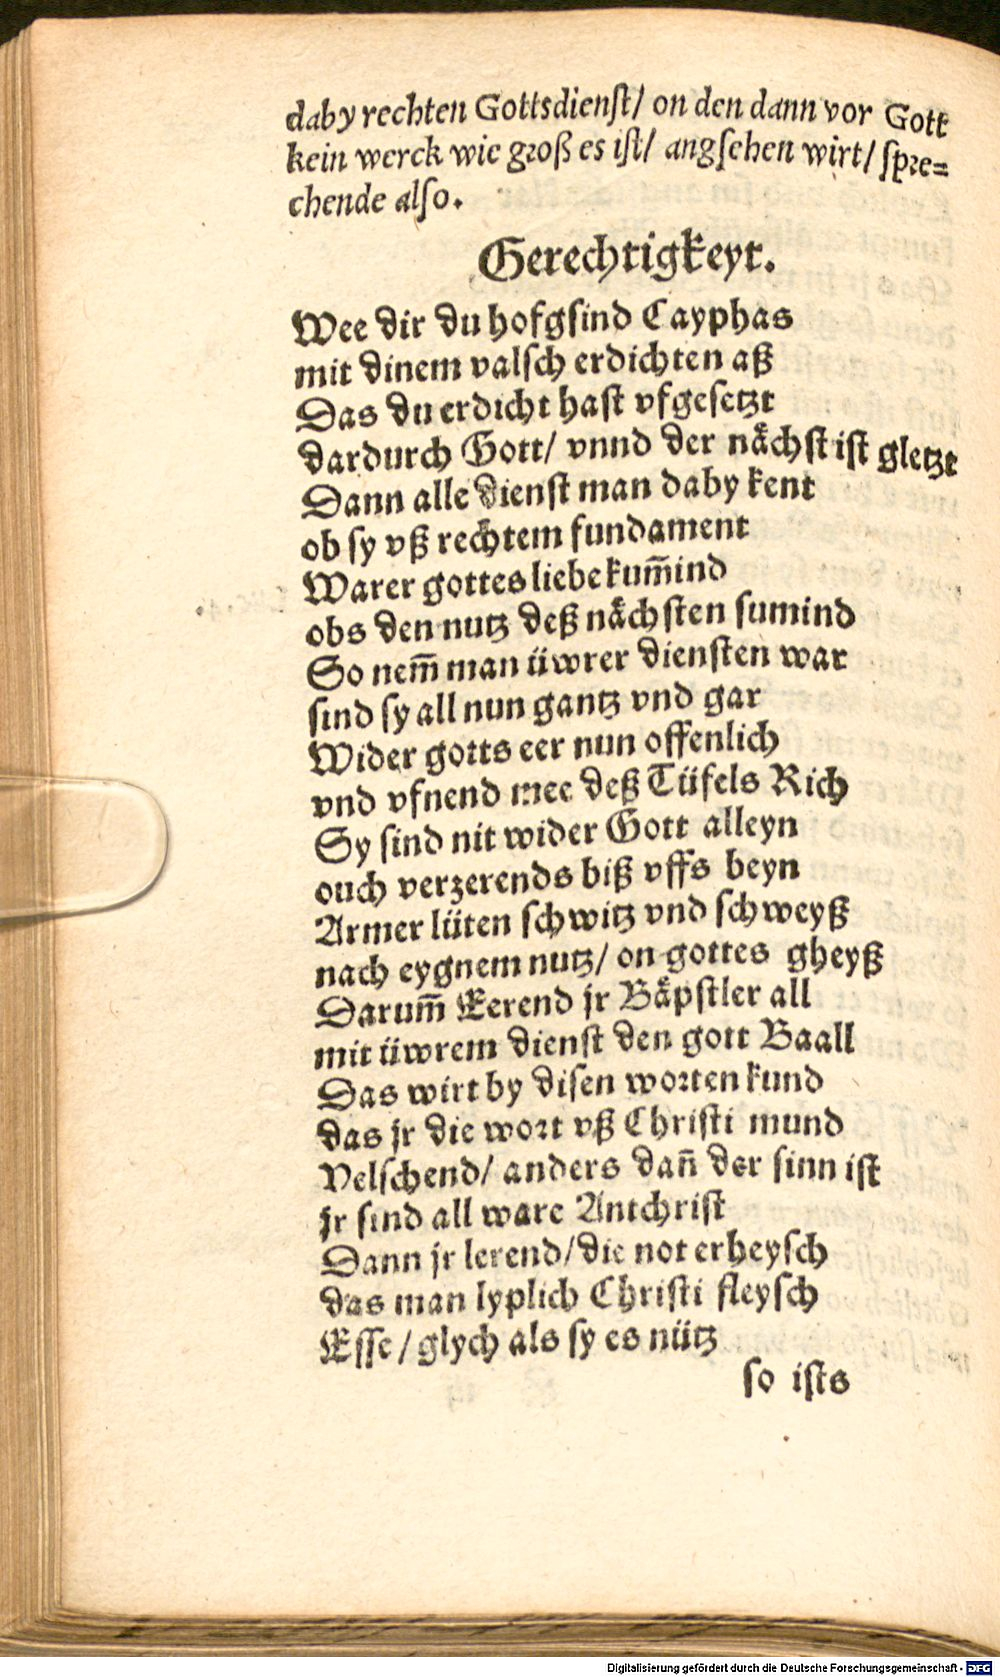 daby rechten Gottsdienſt/ on den dann vor Gott
kein werck wie groß es iſt/ angſehen wirt/ ſpre⸗
chende alſo.
Gerechtigkeyt.
Wee dir du hofgſind Cayphas
mit dinem valſch erdichten aß
Das du erdicht haſt vfgeſetzt
dardurch Gott/ vnnd der naͤchſt iſt gletzt
Dann alle dienſt man daby kent
ob ſy vß rechtem fundament
Warer gottes liebe kum̃ind
obs den nutz deß naͤchſten ſumind
So nem̃ man üwrer dienſten war
ſind ſy all nun gantz vnd gar
Wider gotts eer nun offenlich
vnd vfnend mee deß Tüfels Rich
Sy ſind nit wider Gott alleyn
ouch verzerends biß vffs beyn
Armer lüten ſchwitz vnd ſchweyß
nach eygnem nutz/ on gottes gheyß
Darum̃ Eerend jr Baͤpſtler all
mit üwrem dienſt den gott Baall
Das wirt by diſen worten kund
das jr die wort vß Chriſti mund
Velſchend/ anders dañ der ſinn iſt
jr ſind all ware Antchriſt
Dann jr lerend/ die not erheyſch
das man lyplich Chriſti fleyſch
Eſſe/ glych als ſy es nütz
ſo iſts
Digitalisierung gefördert durch die Deutsche Forschungsgemeinschaft - DFG